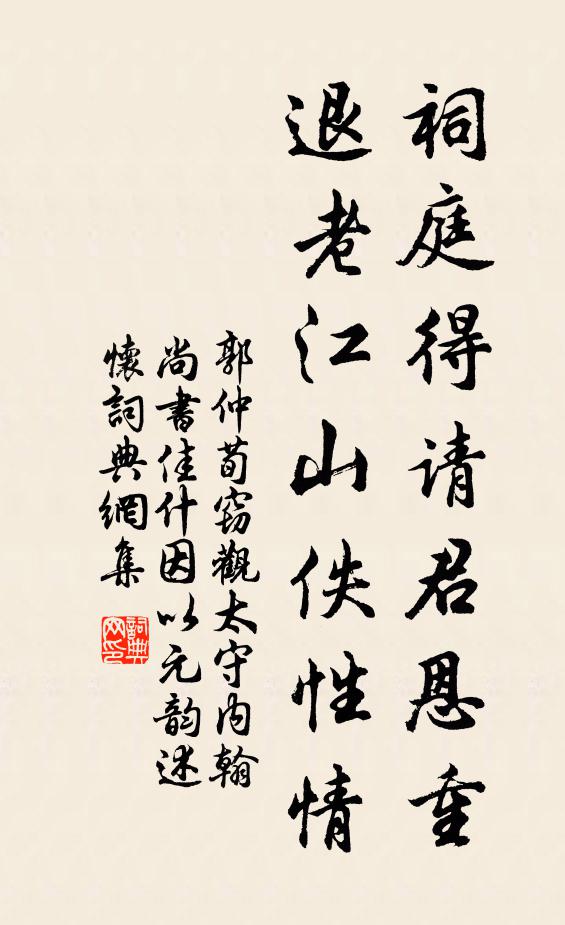 祠庭得请君恩重
退老江山佚性情
郭仲荀窃觀太守内翰
尚書佳什因以元韵述
懷詞典網集
詞典网印